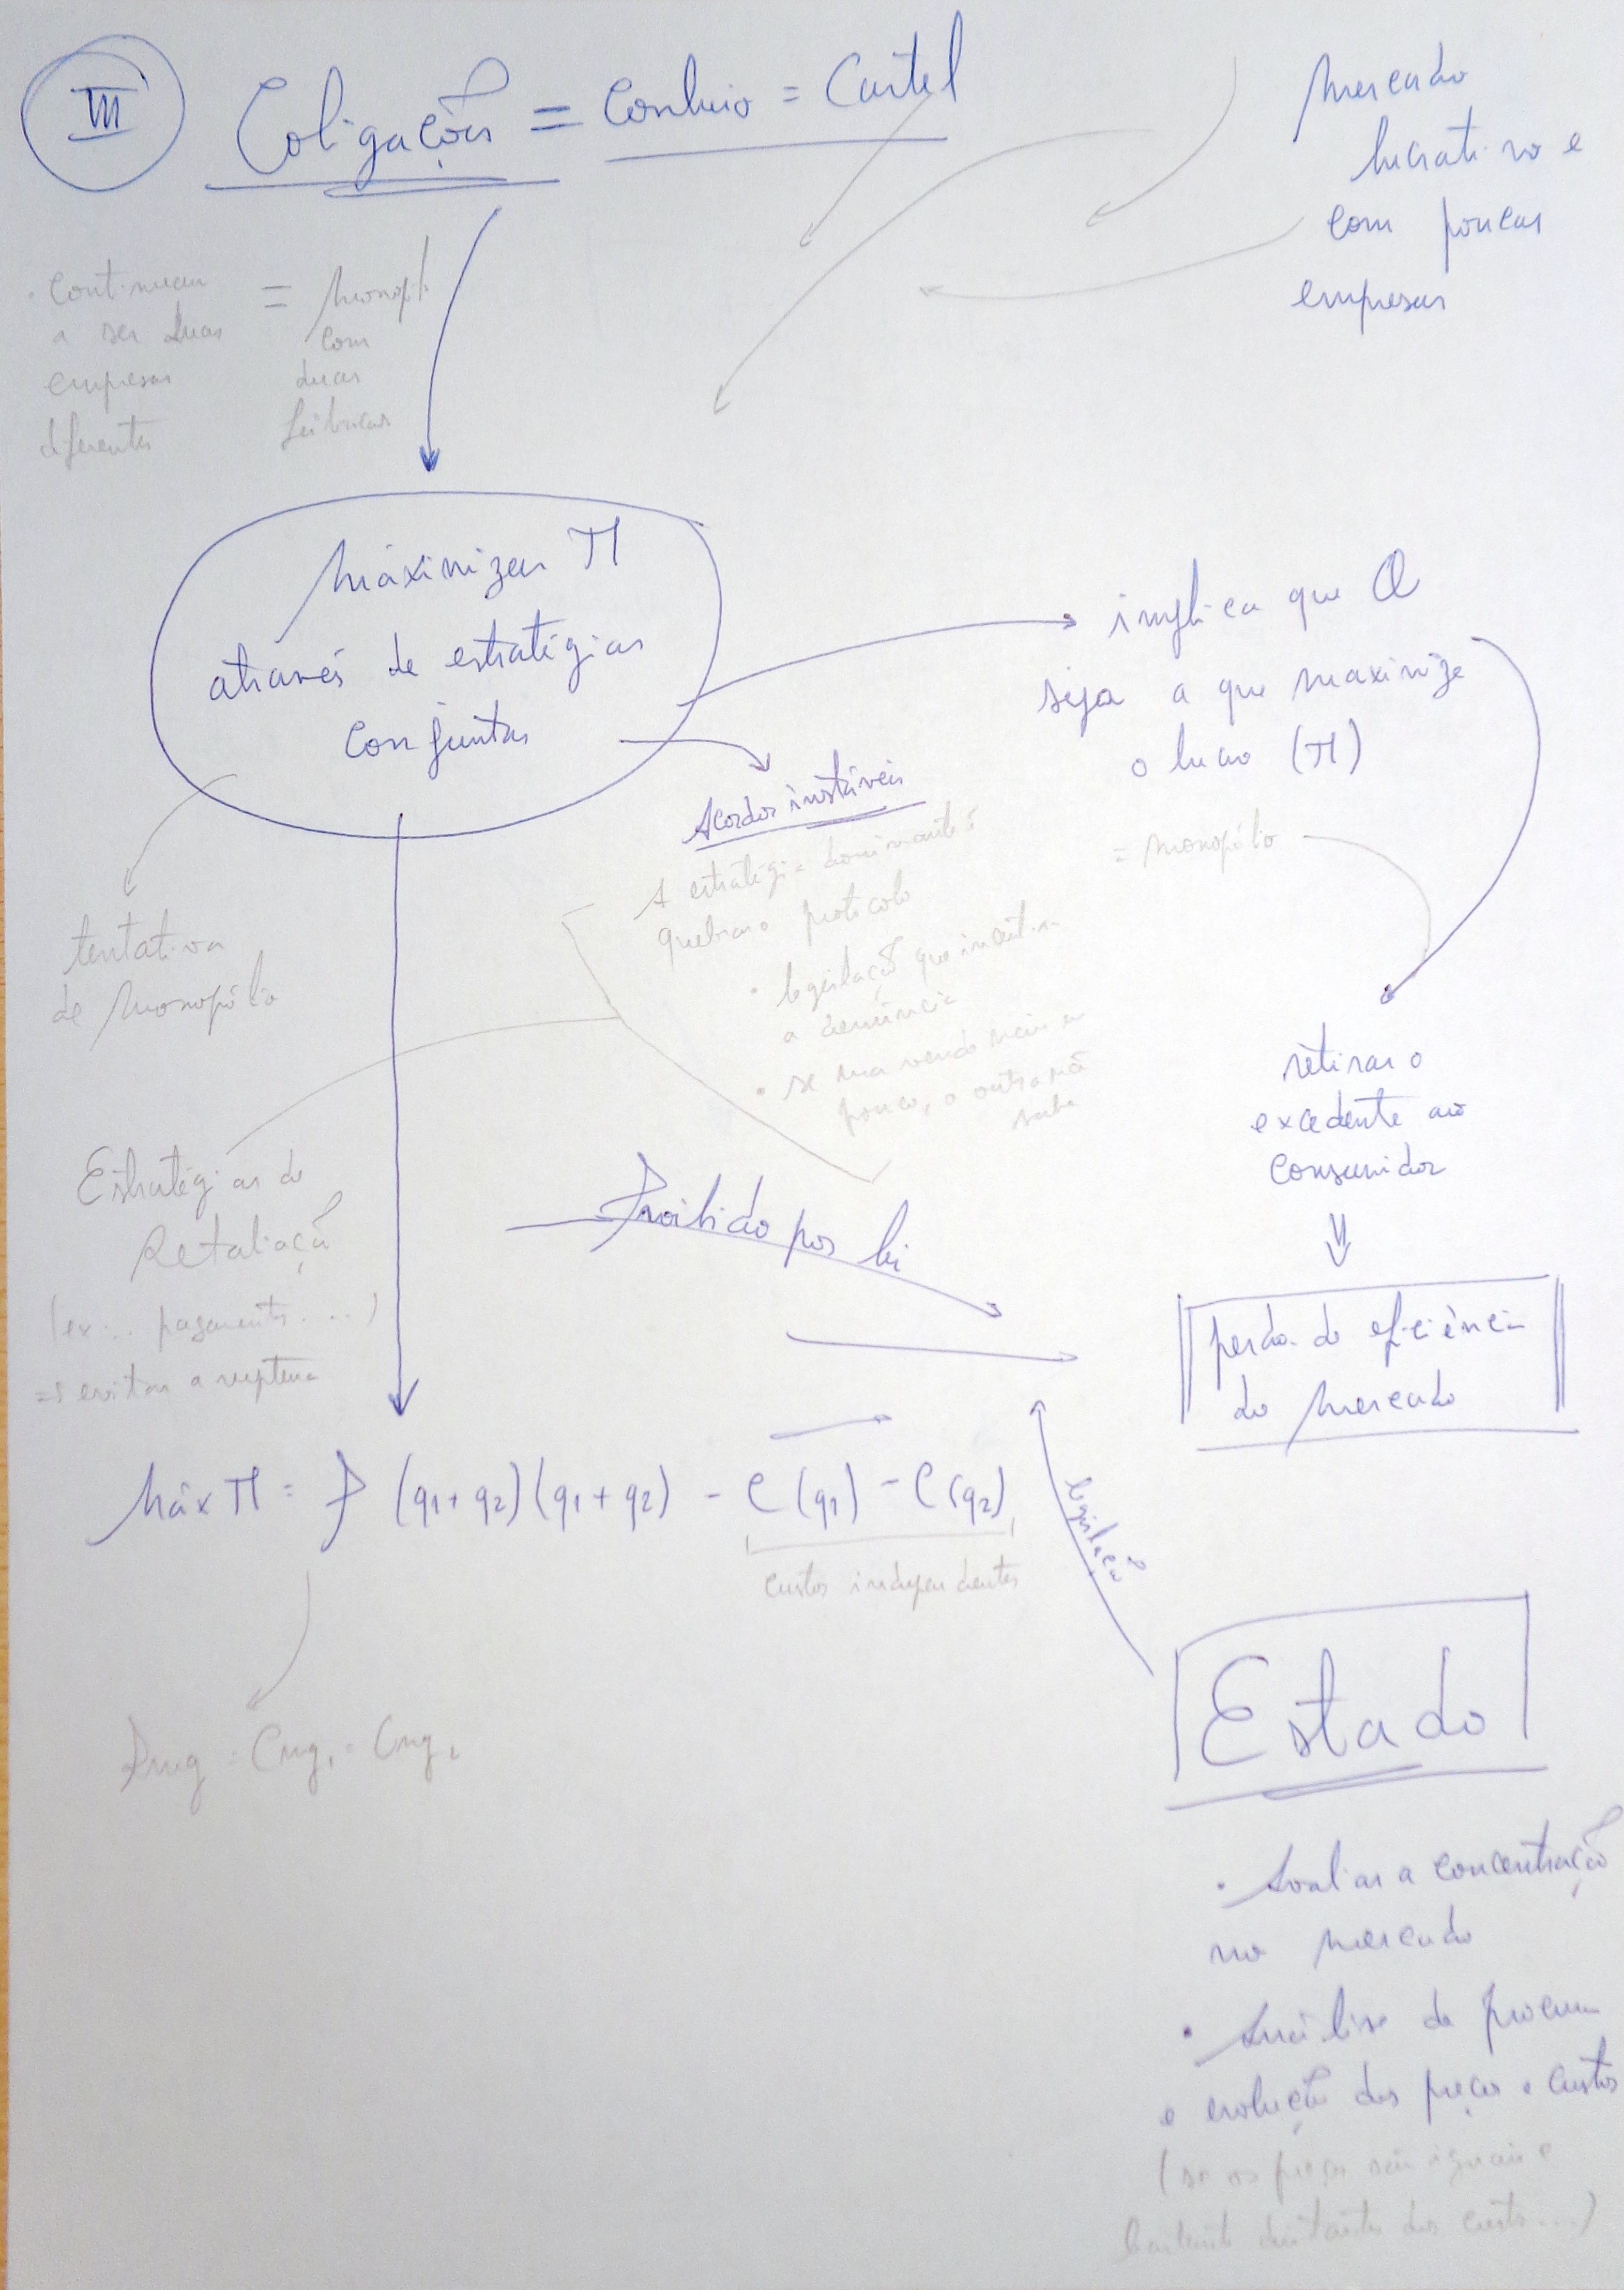 III
Coligações = Conluio = Cartel
mercado
lucrativo e
com poucas
empresas
• Continuam
a ser duas
empresas
diferentes
= monopól.
com
duas
fábricas
Máximizar π
através de estratégias
conjuntas
implica que Q
seja a que maximize
o lucro (π)
= monopólio
Acordos instáveis
A estratégia dominante é
quebrar o protocolo
• legislação que incentiva
a denúncia
• se um vende mais um
pouco, o outro não
sabe
tentativa
de monopólio
Estratégias de
Retaliação
(ex:.. pagamento....)
=> evitar a ruptura
retirar o
excedente ao
consumidor
⇓
perda de eficiência
do mercado
Proibido por lei
Máx π = P (q1 + q2)(q1 + q2) - C(q1) - C(q2)
custos independentes
legislação
Rmg = Cmg1 = Cmg2
Estado
• Avaliar a concentração
no mercado
• Análise da procura
e evolução dos preços e custos
(se os preços são iguais e
bastante distantes dos custos...)